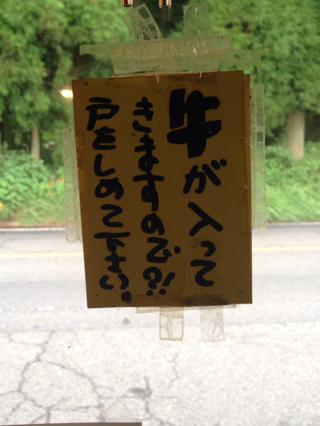 牛が入って
きますので?!
戸をしめて下さい。